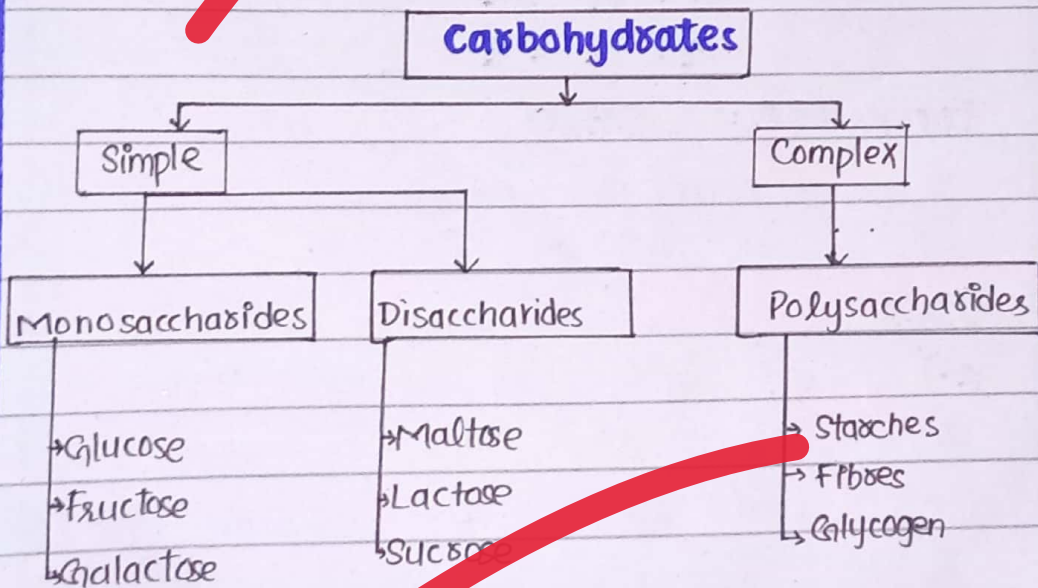 Carbohydrates
Simple
Complex
Monosaccharides
Disaccharides
Polysaccharides
Glucose
Fructose
Galactose
Maltose
Lactose
Sucrose
Starches
Fibres
Glycogen